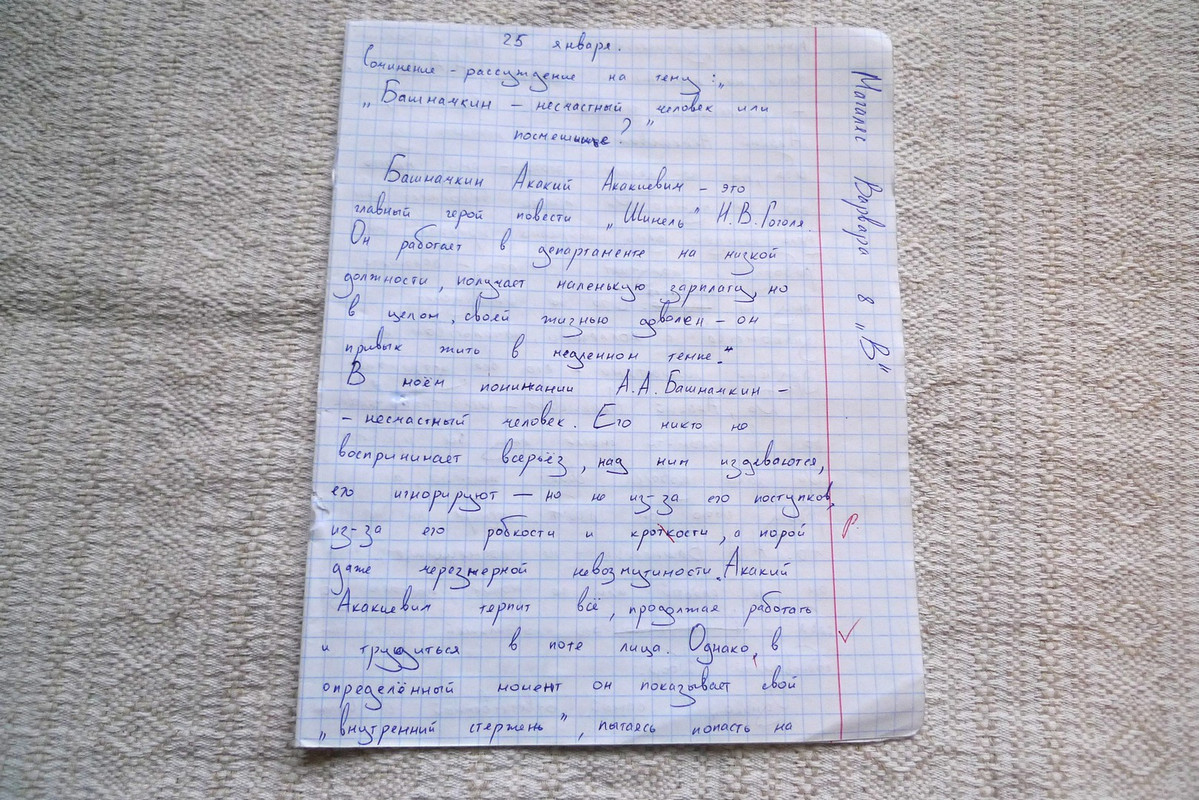 25 января.
Сочинение - рассуждение на тему: „
„Башмачкин – несчастный человек или
посмешище?"
Башмачкин Акакий Акакиевич – это
главный герой повести „Шинель" Н.В.Гоголя.
Он работает в департаменте на низкой
должности, получает маленькую зарплату, но
в целом, своей жизнью доволен – он
привык жить в медленном темпе.
В моём понимании А.А.Башмачкин –
– несчастный человек. Его никто не
воспринимает всерьёз, над ним издеваются,
его игнорируют — но не из-за его поступков,
из-за его робкости и кроткости, а порой
даже черезмерной невозмутимости. Акакий
Акакиевич терпит всё, продолжая работать
и трудиться в поте лица. Однако, в
определённый момент он показывает свой
„внутренний стержень", пытаясь попасть на
Варвара 8 „В"